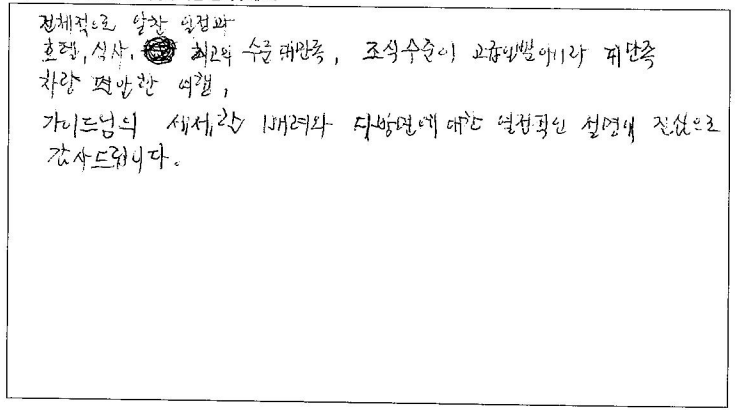 전체적으로 알찬 일정과
호텔, 식사, 최고의 수준 대만족, 조식수준이 고급입맛이라 대만족
차량 편안한 여행,
가이드님의 세세한 배려와 다방면에 대한 열정적인 설명에 진심으로
감사드립니다.